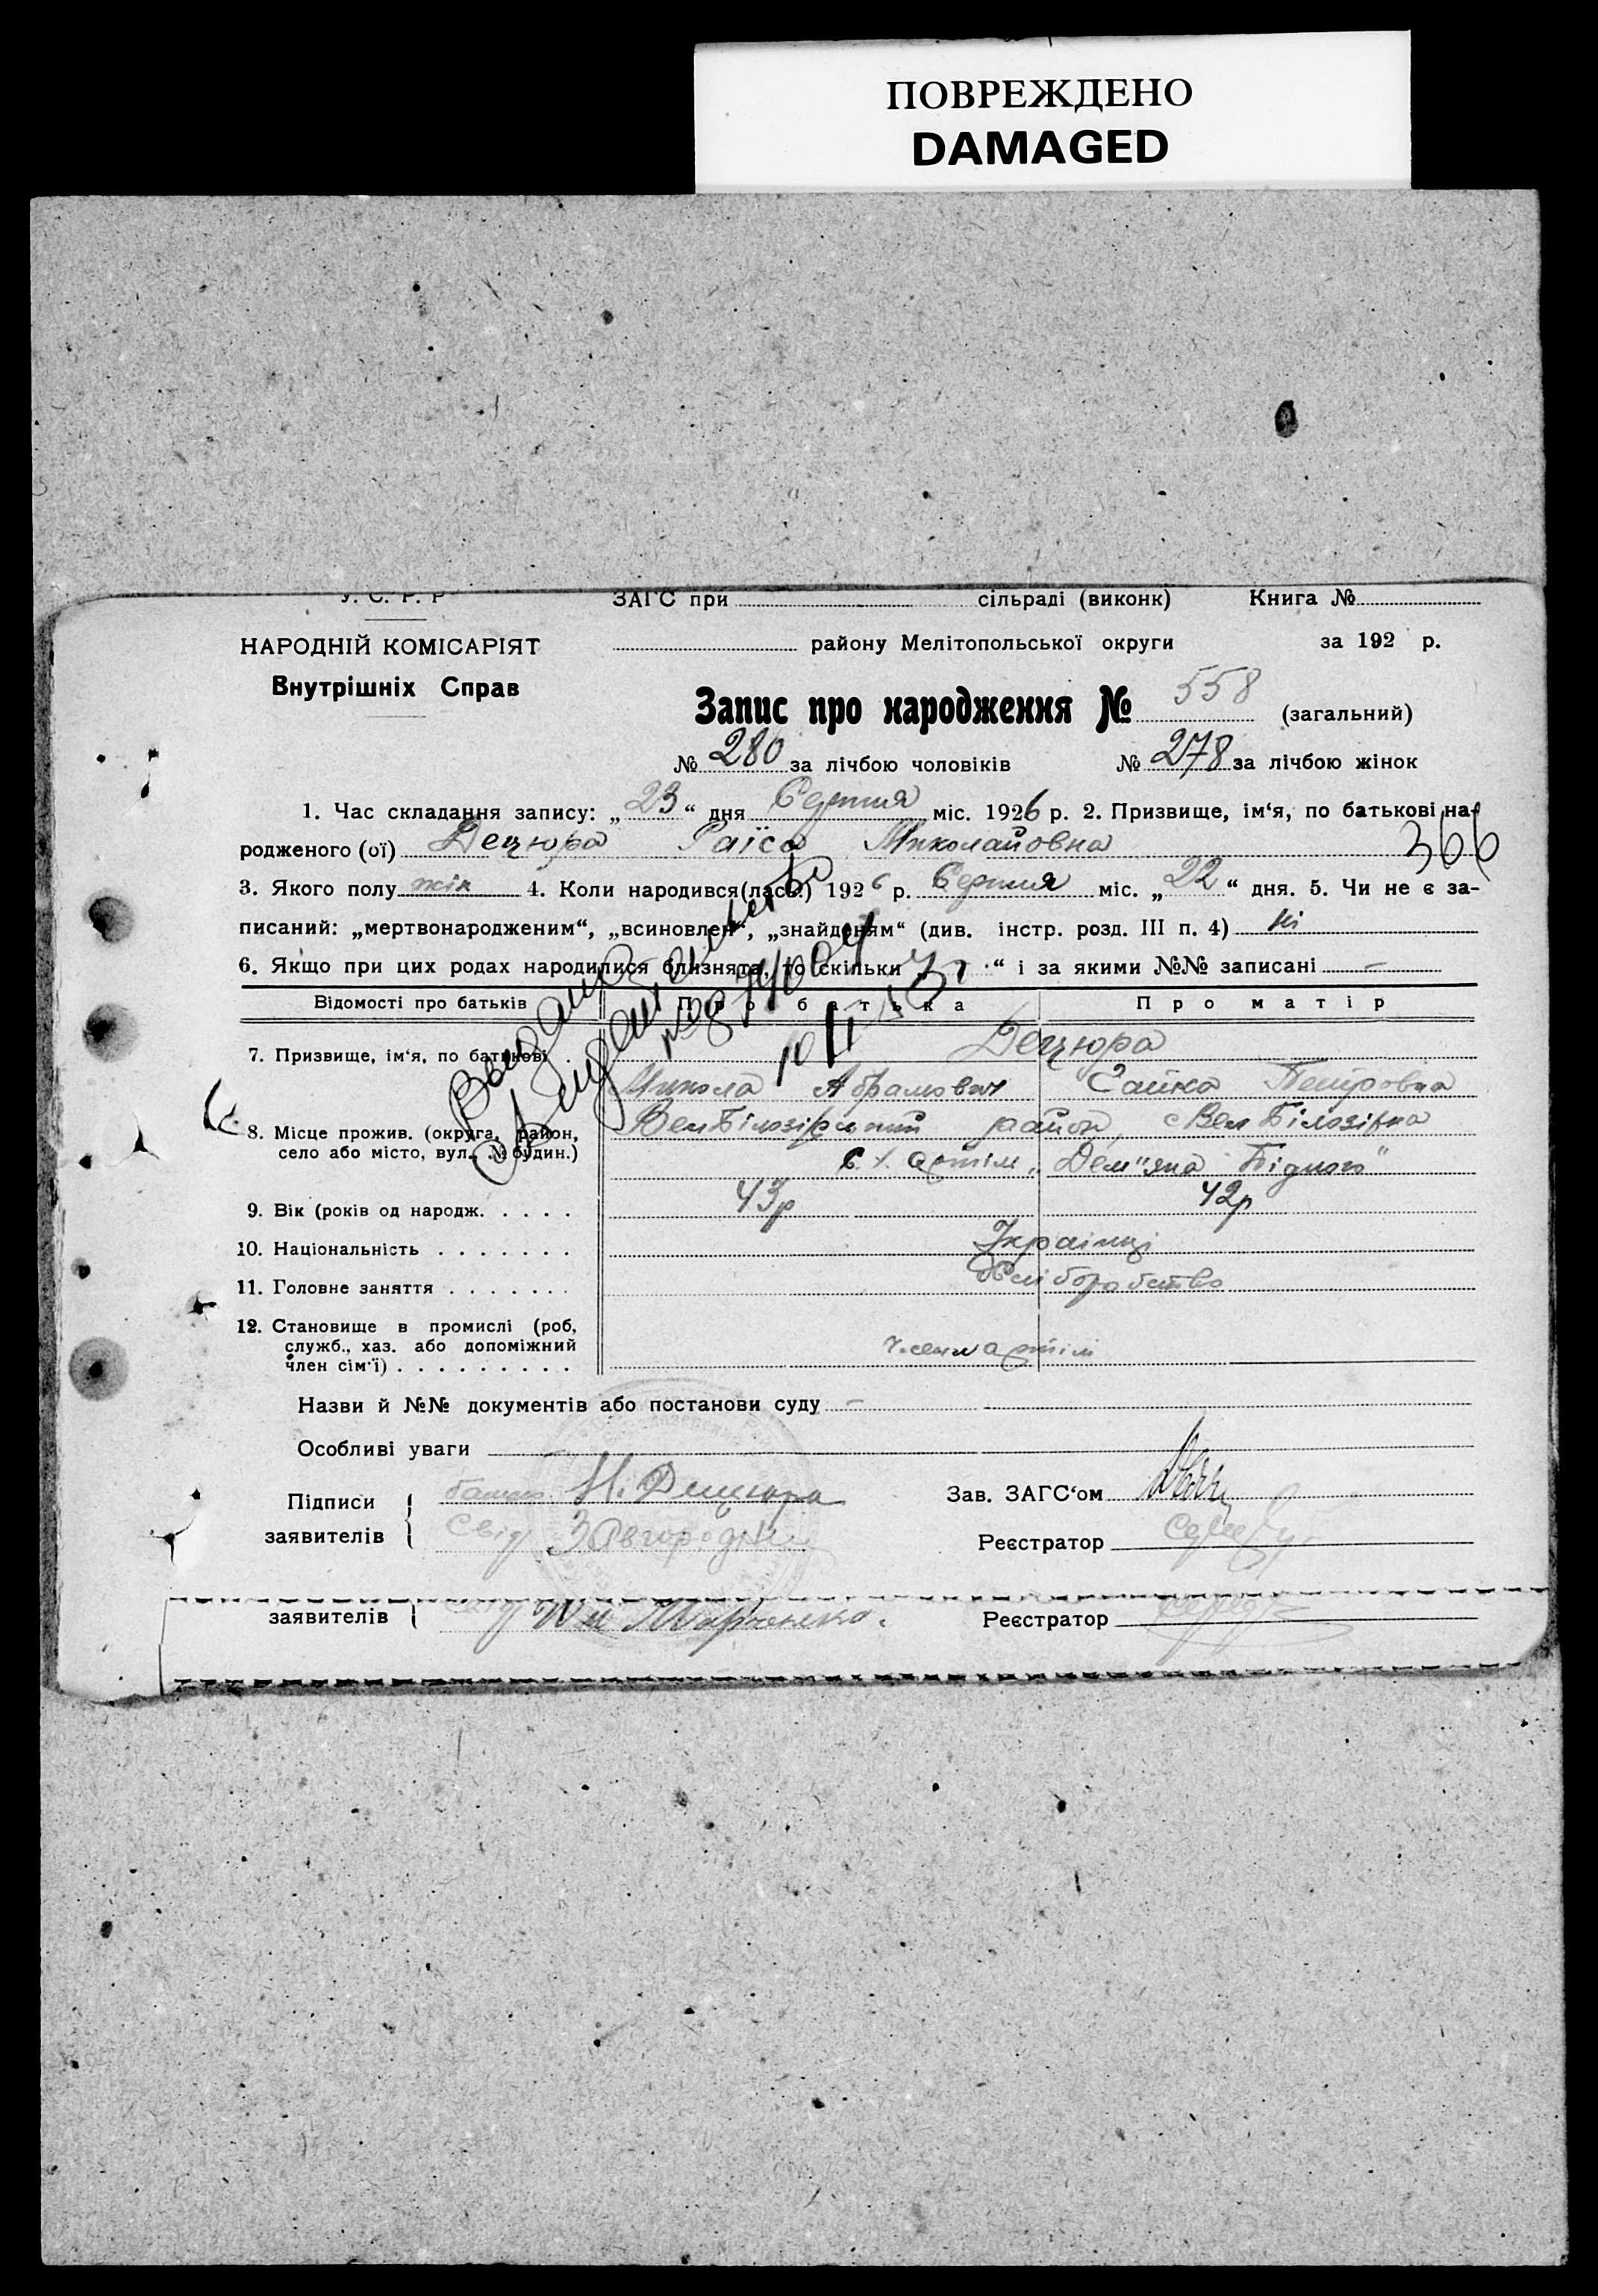 ПОВРЕЖДЕНО
DAMAGED
У. С. Р. Р
ЗАГС при сільраді (виконк) Книга №
НАРОДНІЙ КОМІСАРІЯТ
району Мелітопольської округи за 192 р.
Внутрішніх Справ
Запис про народження № 558 (загальний)
№ 280 за лічбою чоловіків № 278 за лічбою жінок
1. Час складання запису: „23“ дня Серпня міс. 1926 р. 2. Призвище, ім‘я, по батькові на-
родженого (ої) Децюра Раїса Миколайовна 366
3. Якого полу жін 4. Коли народився(лась) 1926 р. Серпня міс. „22“ дня. 5. Чи не є за-
писаний: „мертвонародженим“, „всиновлен“, „знайденям“ (див. інстр. розд. III п. 4) ні
6. Якщо при цих родах народилися близнята, то скільки „ “ і за якими №№ записані —
Выдано
свидетельство
Відомості про батьків Про батька Про матір
Децюра
7. Призвище, ім‘я, по батькові
Микола Абрамович Петровна
8. Місце прожив. (округа, район, Вел Білозірський район, с Вел Білозірка
село або місто, вул. № будин.)
С. Х. артіль „Дем"яна Бідного"
9. Вік (років од народж. . . . . 43р 42р
10. Національність . . . . . . . Українці
11. Головне заняття . . . . . . . хліборобство
12. Становище в промислі (роб,
служб., хаз. або допоміжний
член сім‘ї) . . . . . . . . . артіл
Назви й №№ документів або постанови суду —
Особливі уваги
Підписи батько Н. Децюра Зав. ЗАГС‘ом
заявителів свід Завгородн Реєстратор
заявителів Реєстратор